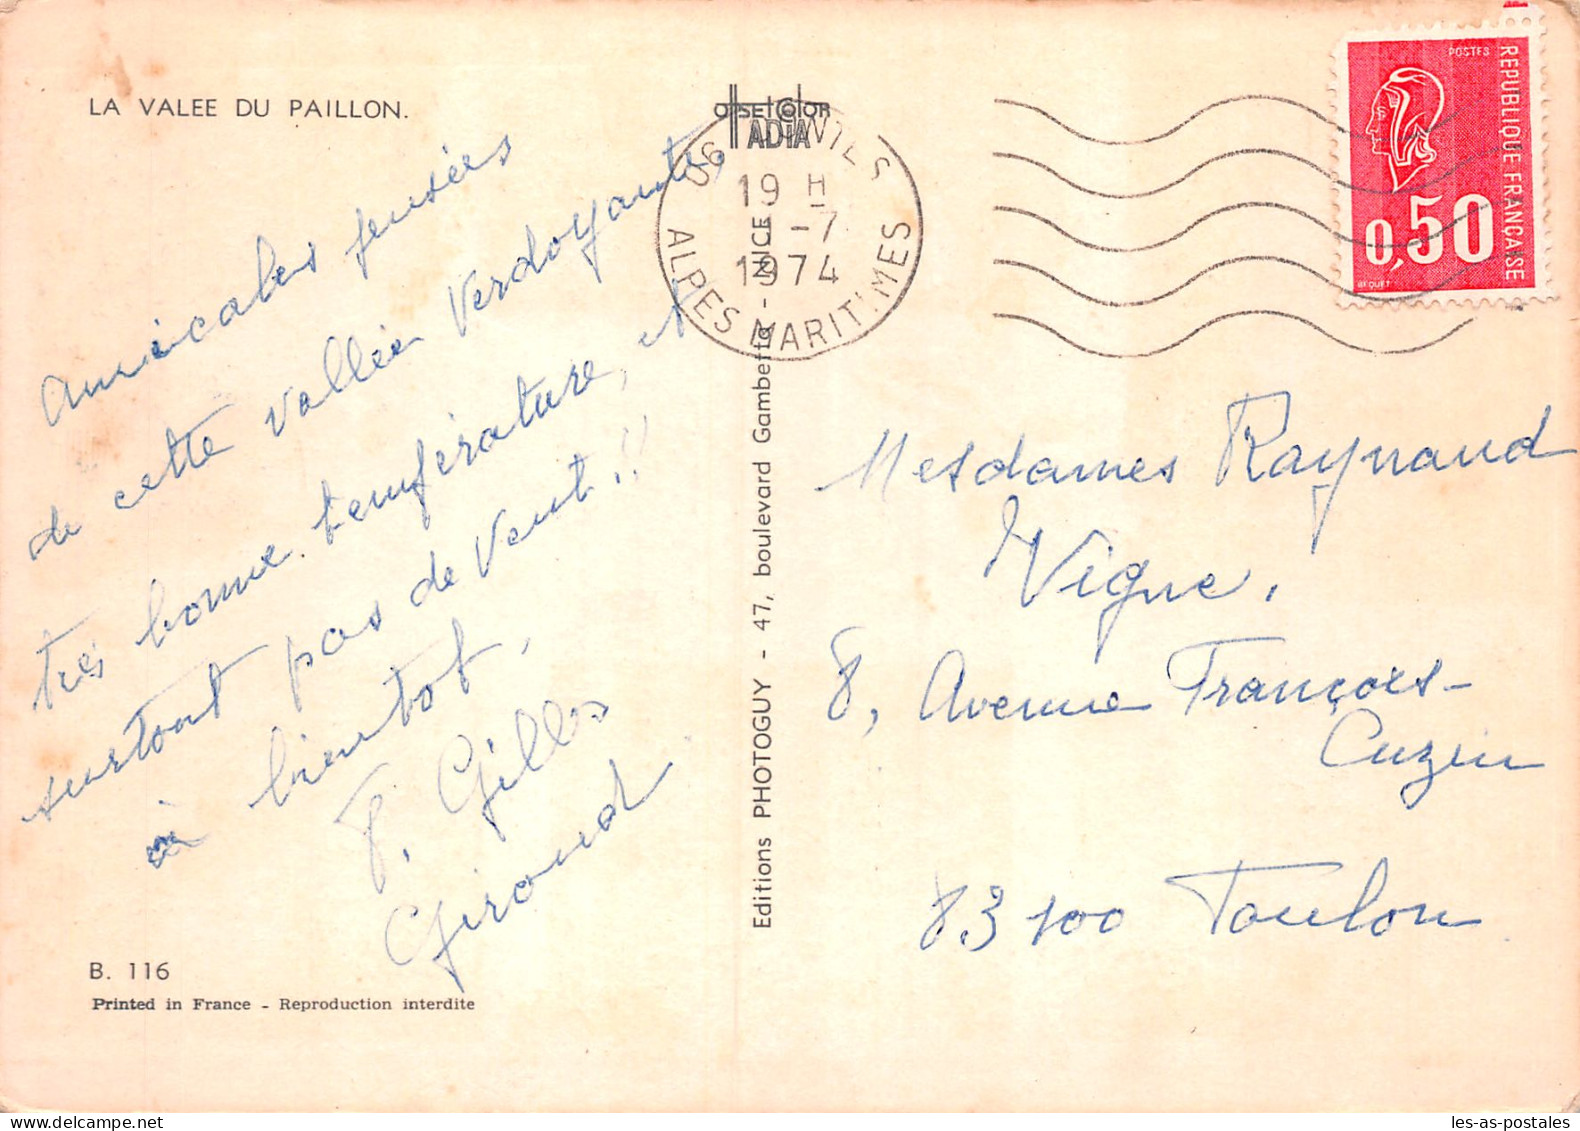 LA VALEE DU PAILLON.
Amicales pensées
de cette vallée verdoyante,
très bonne température, et
surtout pas de vent!!
à bientôt,
F. Gilles
Giroud
B. 116
Printed in France - Reproduction interdite
offset color
ADIA
Editions PHOTOGUY - 47, boulevard Gambetta - NICE
06
19 H
1-7
1974
ALPES MARITIMES
POSTES
REPUBLIQUE FRANCAISE
0,50
BEQUET
Mesdames Raynaud
Vigne,
8, Avenue François-
Cuzin
83100 Toulon
les-as-postales